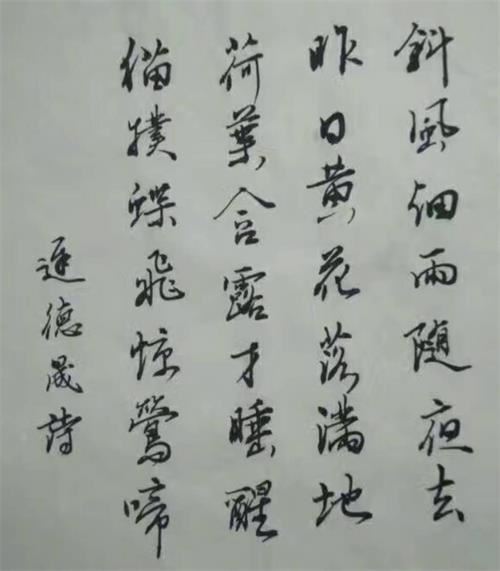 斜風細雨随夜去
昨日黄花落满地
荷葉含露才睡醒
猫撲蝶飛惊鶯啼
德晟詩